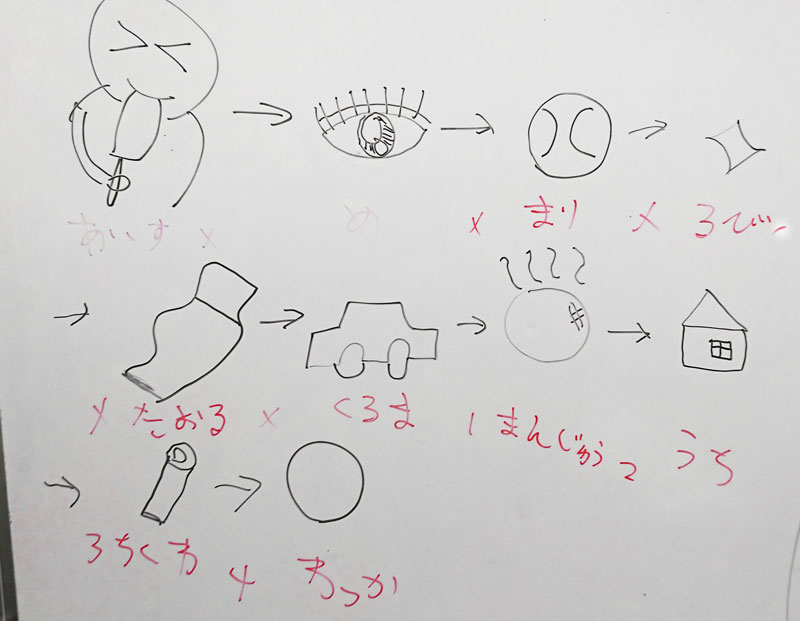 あいす × め × まり ×
× たおる × くるま 1 まんじゅう 2 うち
3 ちくわ 4 わっか